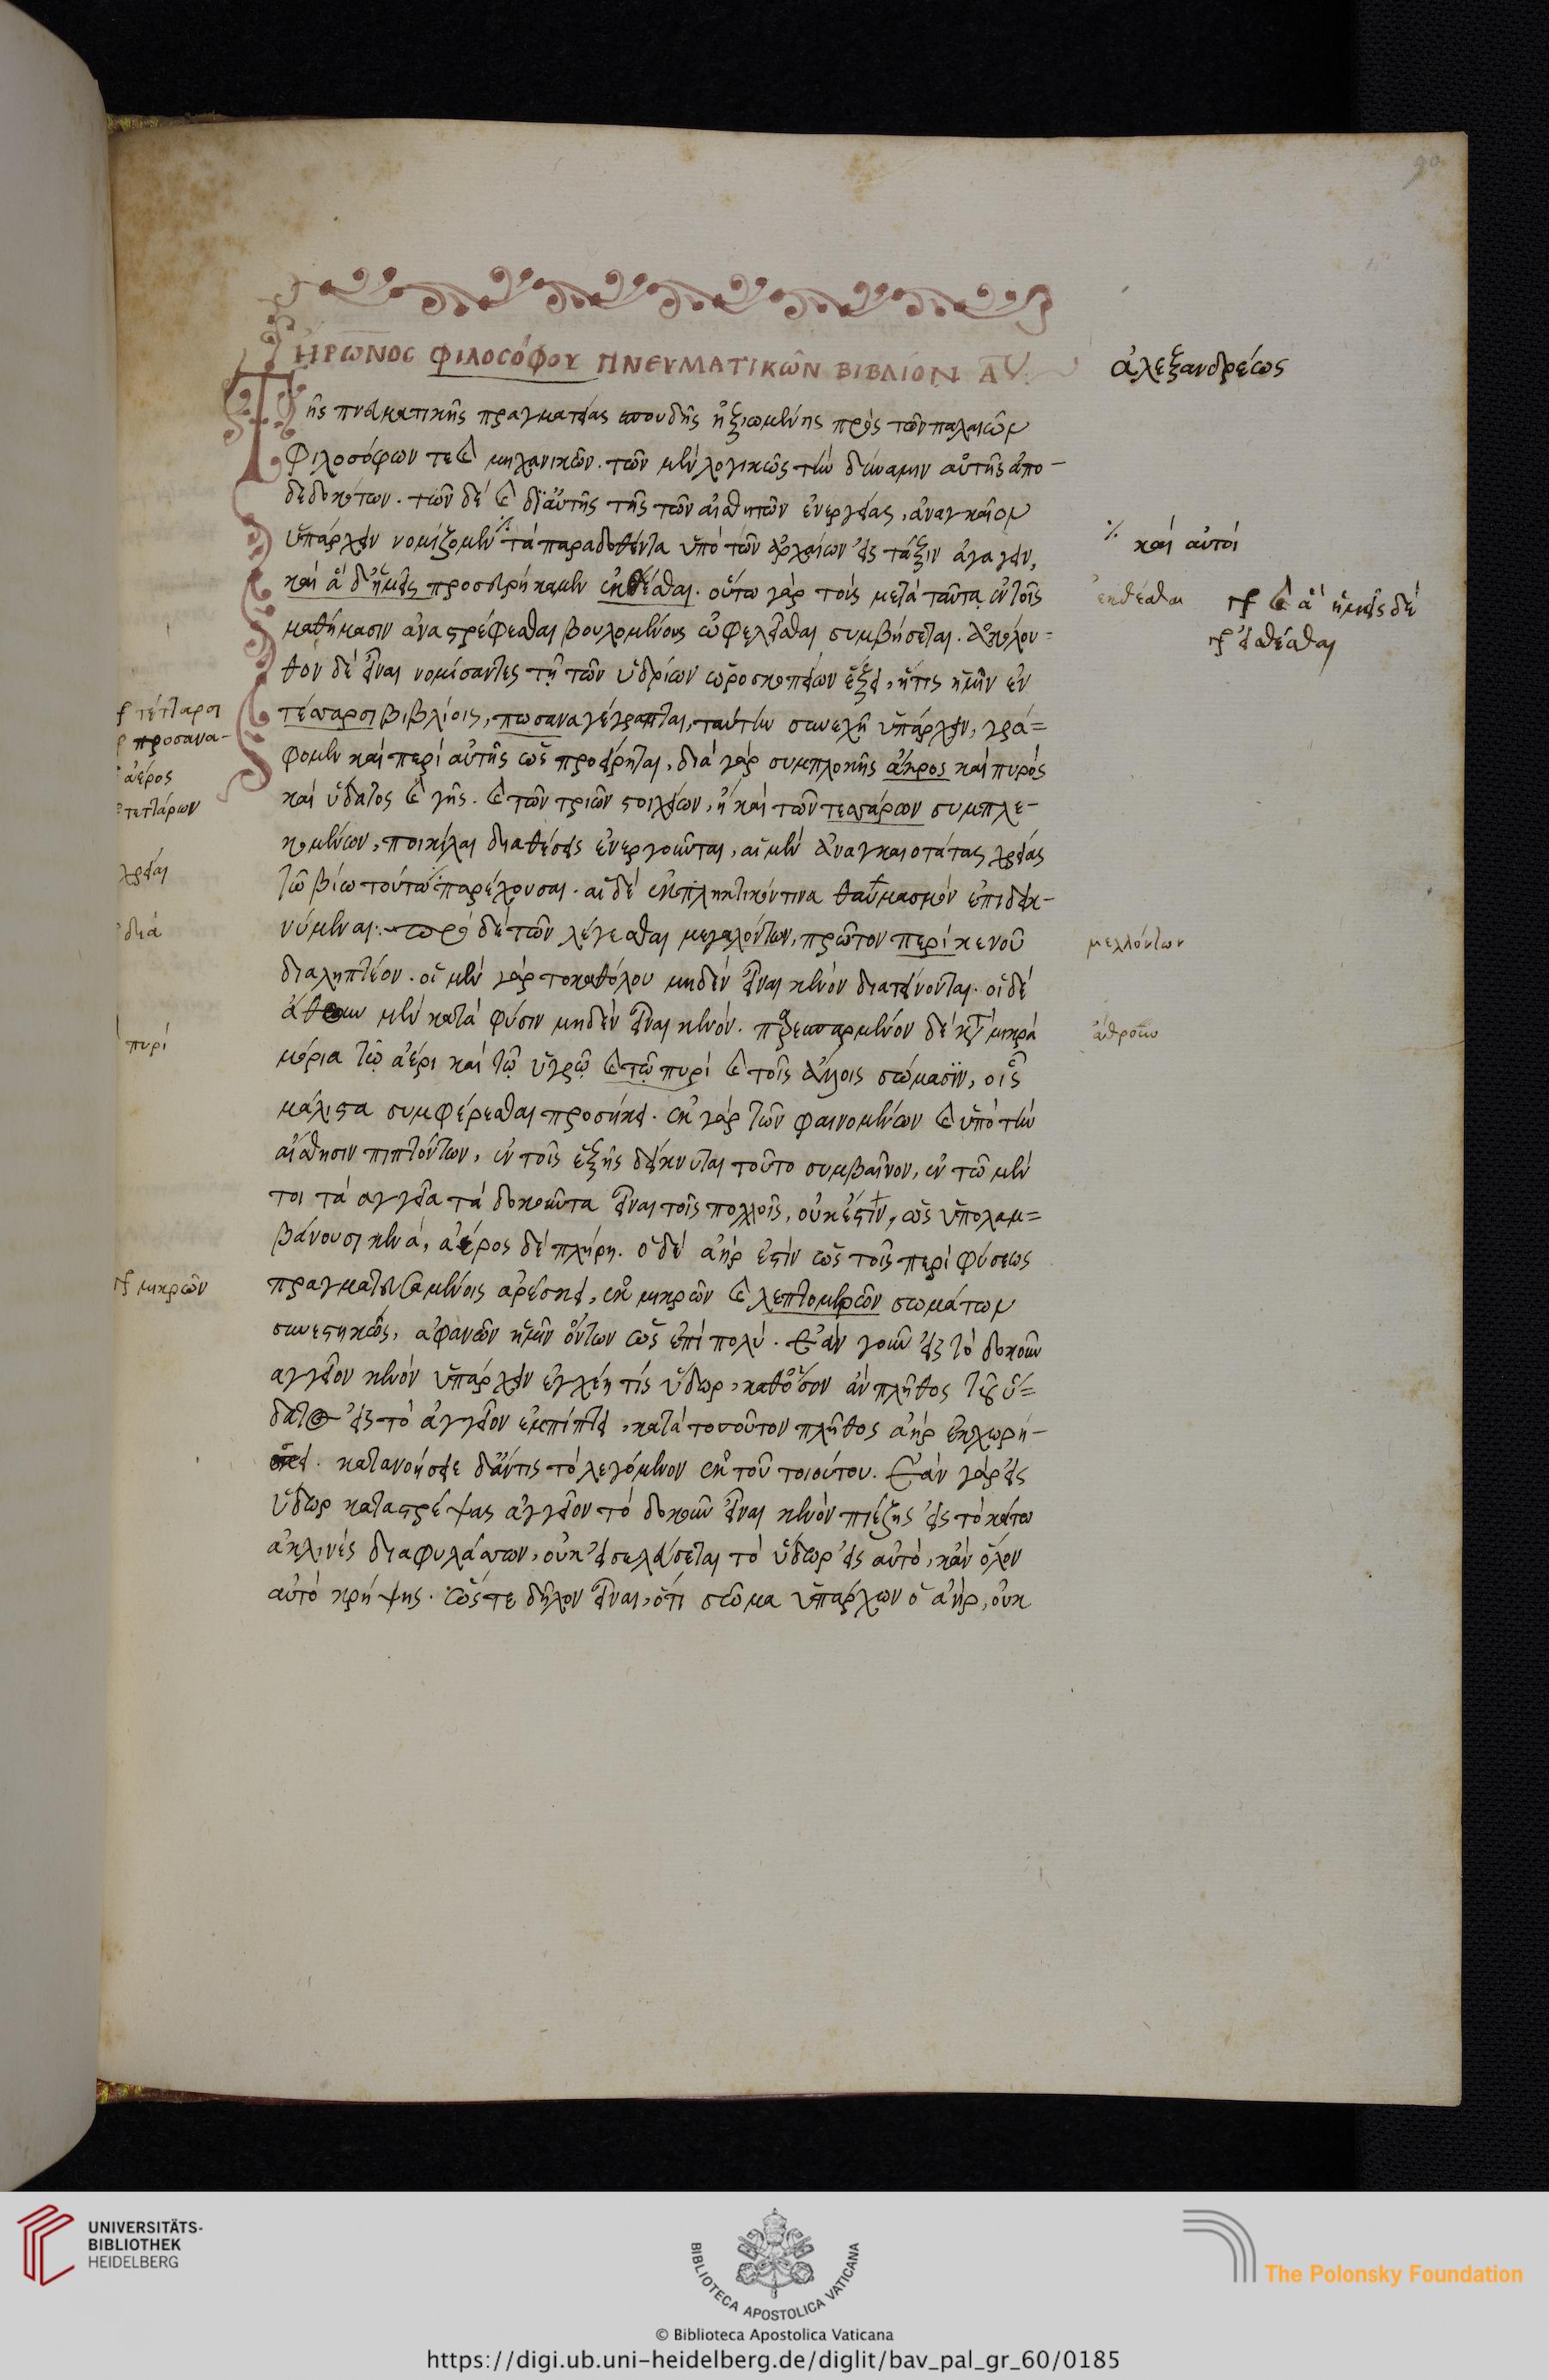 90
ἭΡΩΝΟΣ ΦΙΛΟΣΌΦΟΥ ΠΝΕΥΜΑΤΙΚΩ͂Ν ΒΙΒΛΊΟΝ Α
ἀλεξανδρέως
Τῆς πνευματικῆς πραγματείας σπουδῆς ἠξιωμένης πρὸς τῶν παλαιῶν
φιλοσόφων τε καὶ μηχανικῶν. τῶν μὲν λογικῶς τὴν δύναμιν αὐτῆς ἀπο-
δεδοκότων. τῶν δὲ καὶ δι᾽ αὐτῆς τῆς τῶν αἰσθητῶν ἐνεργείας, ἀναγκαῖον
ὑπάρχειν νομίζομεν ⁒ τὰ παραδοθέντα ὑπὸ τῶν ἀρχαίων εἰς τάξιν ἀγαγεῖν,
⁒ καὶ αὐτοὶ
καὶ ἃ δ᾽ ἡμεῖς προσευρήκαμεν ἐκθέσθαι. οὕτω γὰρ τοῖς μετὰ ταῦτα ἐν τοῖς
ἐκθέσθαι
καὶ ἃ ἡμεῖς δὲ
εἰσθέσθαι
μαθήμασιν ἀναστρέφεσθαι βουλομένοις ὠφελεῖσθαι συμβήσεται. ἀκόλου=
θον δὲ εἶναι νομίσαντες τῇ τῶν ὑδρίων ὡροσκοπείων ἕξει, ἥτις ἡμῖν ἐν
τέτταρσι
τέσσαρσι βιβλίοις, πωσαναγέγραπται, ταύτην συνεχῆ ὑπάρχειν, γρά=
προσανα-
φομεν καὶ περὶ αὐτῆς ὡς προείρηται, διὰ γὰρ συμπλοκῆς ἀκρος καὶ πυρὸς
ἀέρος
καὶ ὕδατος καὶ γῆς. καὶ τῶν τριῶν στοιχείων, ἢ καὶ τῶν τεσσάρων συμπλε-
τεττάρων
κομένων, ποικίλαι διαθέσεις ἐνεργοῦνται, αἱ μὲν ἀναγκαιοτάτας χρείας
χρείαι
τῷ βίῳ τούτῳ παρέχουσαι. αἱ δὲ ἐκπληκτικόν τινα θαυμασμὸν ἐπιδεικ-
νύμεναι. πρὸ δὲ τῶν λέγεσθαι μεγαλόντων, πρῶτον περὶ κενοῦ
διὰ
μελλόντων
διαληπτέον. οἱ μὲν γὰρ τοκαθόλου μηδὲν εἶναι κενὸν διατείνονται. οἱ δὲ
ἄθρουν μὲν κατὰ φύσιν μηδὲν εἶναι κενόν. παρεσπαρμένον δὲ κατὰ μικρὰ
πυρὶ
ἀθροῦν
μόρια τῷ ἀέρι καὶ τῷ ὑγρῷ καὶ τῷ πυρὶ καὶ τοῖς ἄλλοις σώμασιν, οἷς
μάλιστα συμφέρεσθαι προσήκει. ἐκ γὰρ τῶν φαινομένων καὶ ὑπὸ τὴν
αἴσθησιν πιπτόντων, ἐν τοῖς ἑξῆς δείκνυται τοῦτο συμβαῖνον, ἐν τῷ μὲν
τοι τὰ αγγεῖα τὰ δοκοῦντα εἶναι τοῖς πολλοῖς, οὐκ ἐστίν, ὡς ὑπολαμ=
βάνουσι κενά, ἀέρος δὲ πλήρη. ὁ δὲ ἀήρ ἐστὶν ὡς τοῖς περὶ φύσεως
πραγματευσαμένοις ἀρέσκει, ἐκ μικρῶν καὶ λεπτομερῶν σωμάτων
μικρῶν
συνεστηκώς, ἀφανῶν ἡμῖν ὄντων ὡς ἐπὶ πολύ. Ἐὰν γοῦν εἰς τὸ δοκοῦν
αγγεῖον κενὸν ὑπάρχειν ἐγχέῃ τὶς ὕδωρ, καθόσον ἂν πλῆθος τοῦ ὕ=
δατος εἰς τὸ ἀγγεῖον ἐμπίπτει, κατὰ τοσοῦτον πλῆθος ἀὴρ ἐκχωρή-
σει. κατανοήσειε δ᾽ ἄν τις τὸ λεγόμενον ἐκ τοῦ τοιούτου. Ἐὰν γὰρ εἰς
ὕδωρ καταστρέψας ἀγγεῖον τὸ δοκοῦν εἶναι κενὸν πιέζῃς εἰς τὸ κάτω
ἀκλινὲς διαφυλάσσων, οὐκ εἰσελεύσεται τὸ ὕδωρ εἰς αὐτό, κἂν ὅλον
αὐτὸ κρύψῃς. ὥστε δῆλον εἶναι, ὅτι σῶμα ὑπάρχων ὁ ἀήρ, οὐκ
UNIVERSITÄTS-
BIBLIOTHEK
HEIDELBERG
BIBLIOTECA APOSTOLICA VATICANA
The Polonsky Foundation
© Biblioteca Apostolica Vaticana
https://digi.ub.uni-heidelberg.de/diglit/bav_pal_gr_60/0185